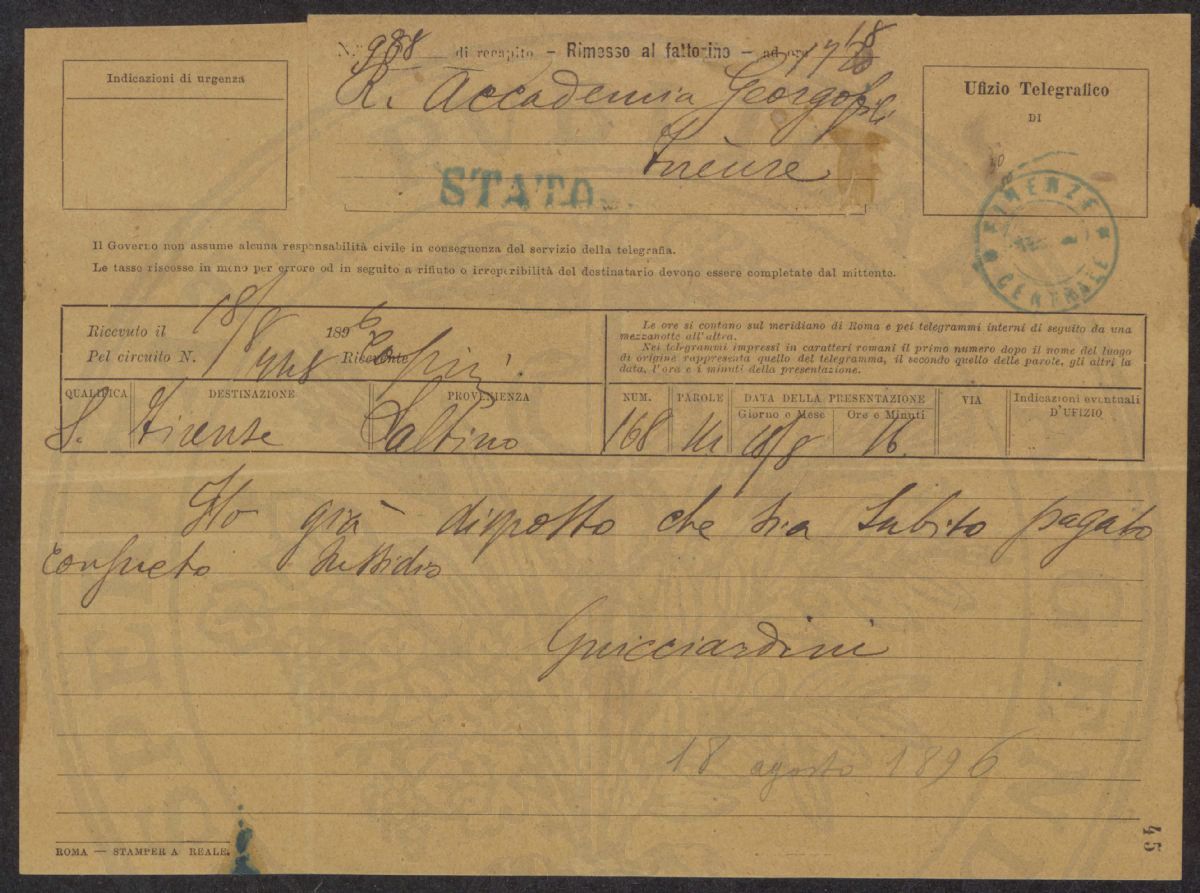 N.º 988 di recapito – Rimesso al fattorino – ad ore 17
R. Accademia Georgofili
Firenze
STATO
Indicazioni di urgenza
Ufizio Telegrafico
DI
FIRENZE
CENTRALE
Il Governo non assume alcuna responsabilità civile in conseguenza del servizio della telegrafia.
Le tasse riscosse in meno per errore od in seguito a rifiuto o irreperibilità del destinatario devono essere completate dal mittente.
Ricevuto il 18/8 1896
Pel circuito N. Ricevente
Le ore si contano sul meridiano di Roma e pei telegrammi interni di seguito da una
mezzanotte all'altra.
Nei telegrammi impressi in caratteri romani il primo numero dopo il nome del luogo
di origine rappresenta quello del telegramma, il secondo quello delle parole, gli altri la
data, l'ora e i minuti della presentazione.
QUALIFICA DESTINAZIONE PROVENIENZA NUM. PAROLE DATA DELLA PRESENTAZIONE VIA Indicazioni eventuali
Giorno e Mese Ore e Minuti D'UFIZIO
S. Firenze Saltino 168 18/8 16.
Ho già disposto che sia subito pagato
consueto sussidio
Guicciardini
18 agosto 1896
ROMA — STAMPERA REALE.
45